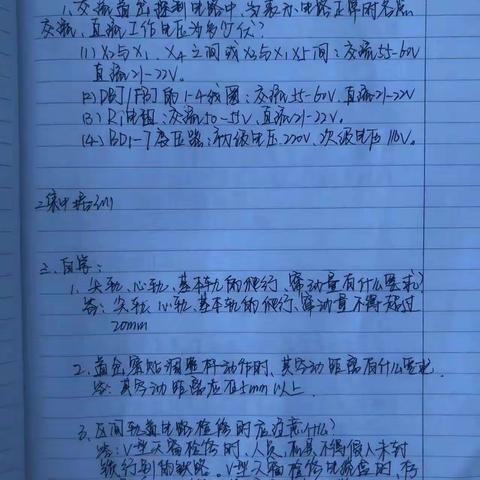 1、交流道岔控制电路中,当表示电路正常时各点
交流、直流工作电压为多少伏?
(1) X2与X1、X4之间或X3与X1X5间:交流55-60V
直流21-22V。
(2) DBJ/FBJ的1-4线圈:交流55-60V、直流21-22V
(3) R1电阻:交流50-55V,直流21-22V。
(4) BD1-7变压器:初级电压220V、次级电压110V。
二、集中培训
三、自学:
1、尖轨、心轨、基本轨的爬行、窜动量有什么要求?
答:尖轨、心轨、基本轨的爬行、窜动量不得超过
20mm
2、道岔密贴调整杆动作时,其空动距离有什么要求
答:其空动距离应在5mm以上.
3、区间轨道电路检修时应注意什么?
答:V型天窗检修时,人员、机具不得侵入未封
锁行别的铁路。V型天窗检修电缆盒时,